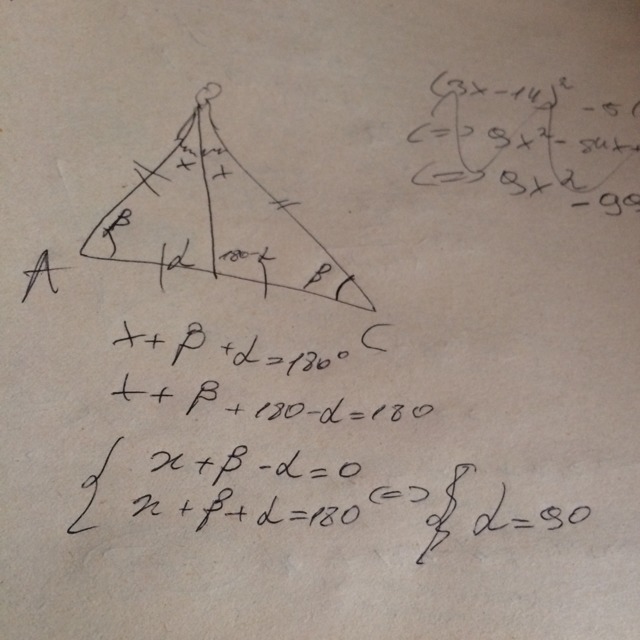 (3x-14)²
<=> 9x²-
<=> 9x²
x x
β
α 180-α β
A
C
x + β + α = 180°
x + β + 180 - α = 180
{ x + β - α = 0
x + β + α = 180 <=> { α = 90